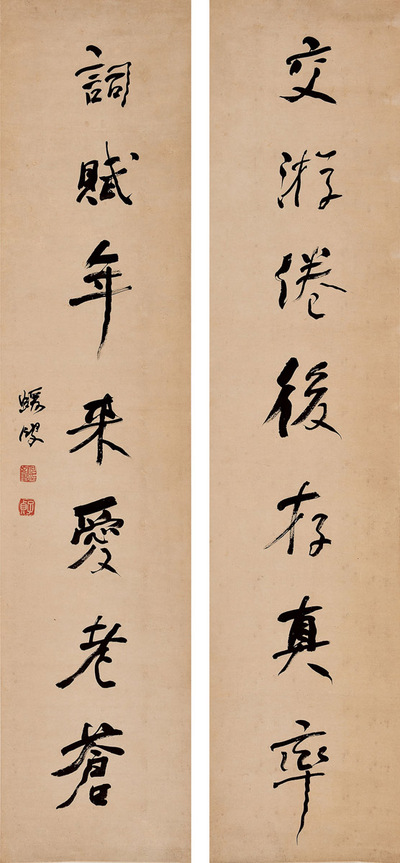 交游倦後存真率
詞賦年来愛老蒼
蝯叟